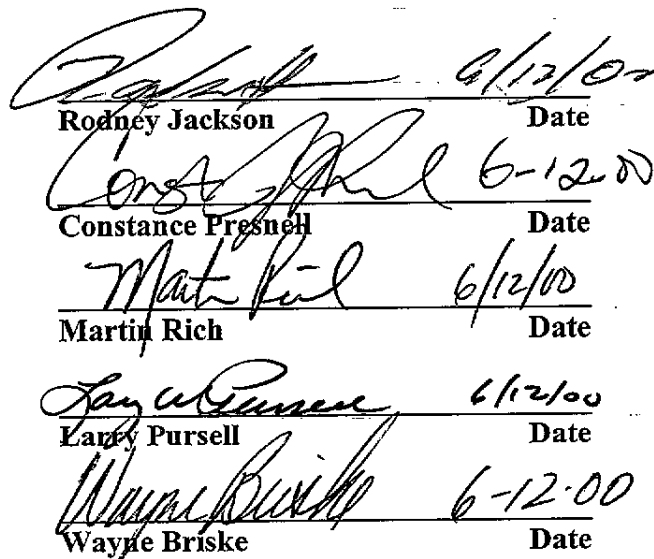 6/12/00
Rodney Jackson Date
6-12-00
Constance Presnell Date
Martin Rich 6/12/00
Martin Rich Date
Larry W Pursell 6/12/00
Larry Pursell Date
Wayne Briske 6-12-00
Wayne Briske Date